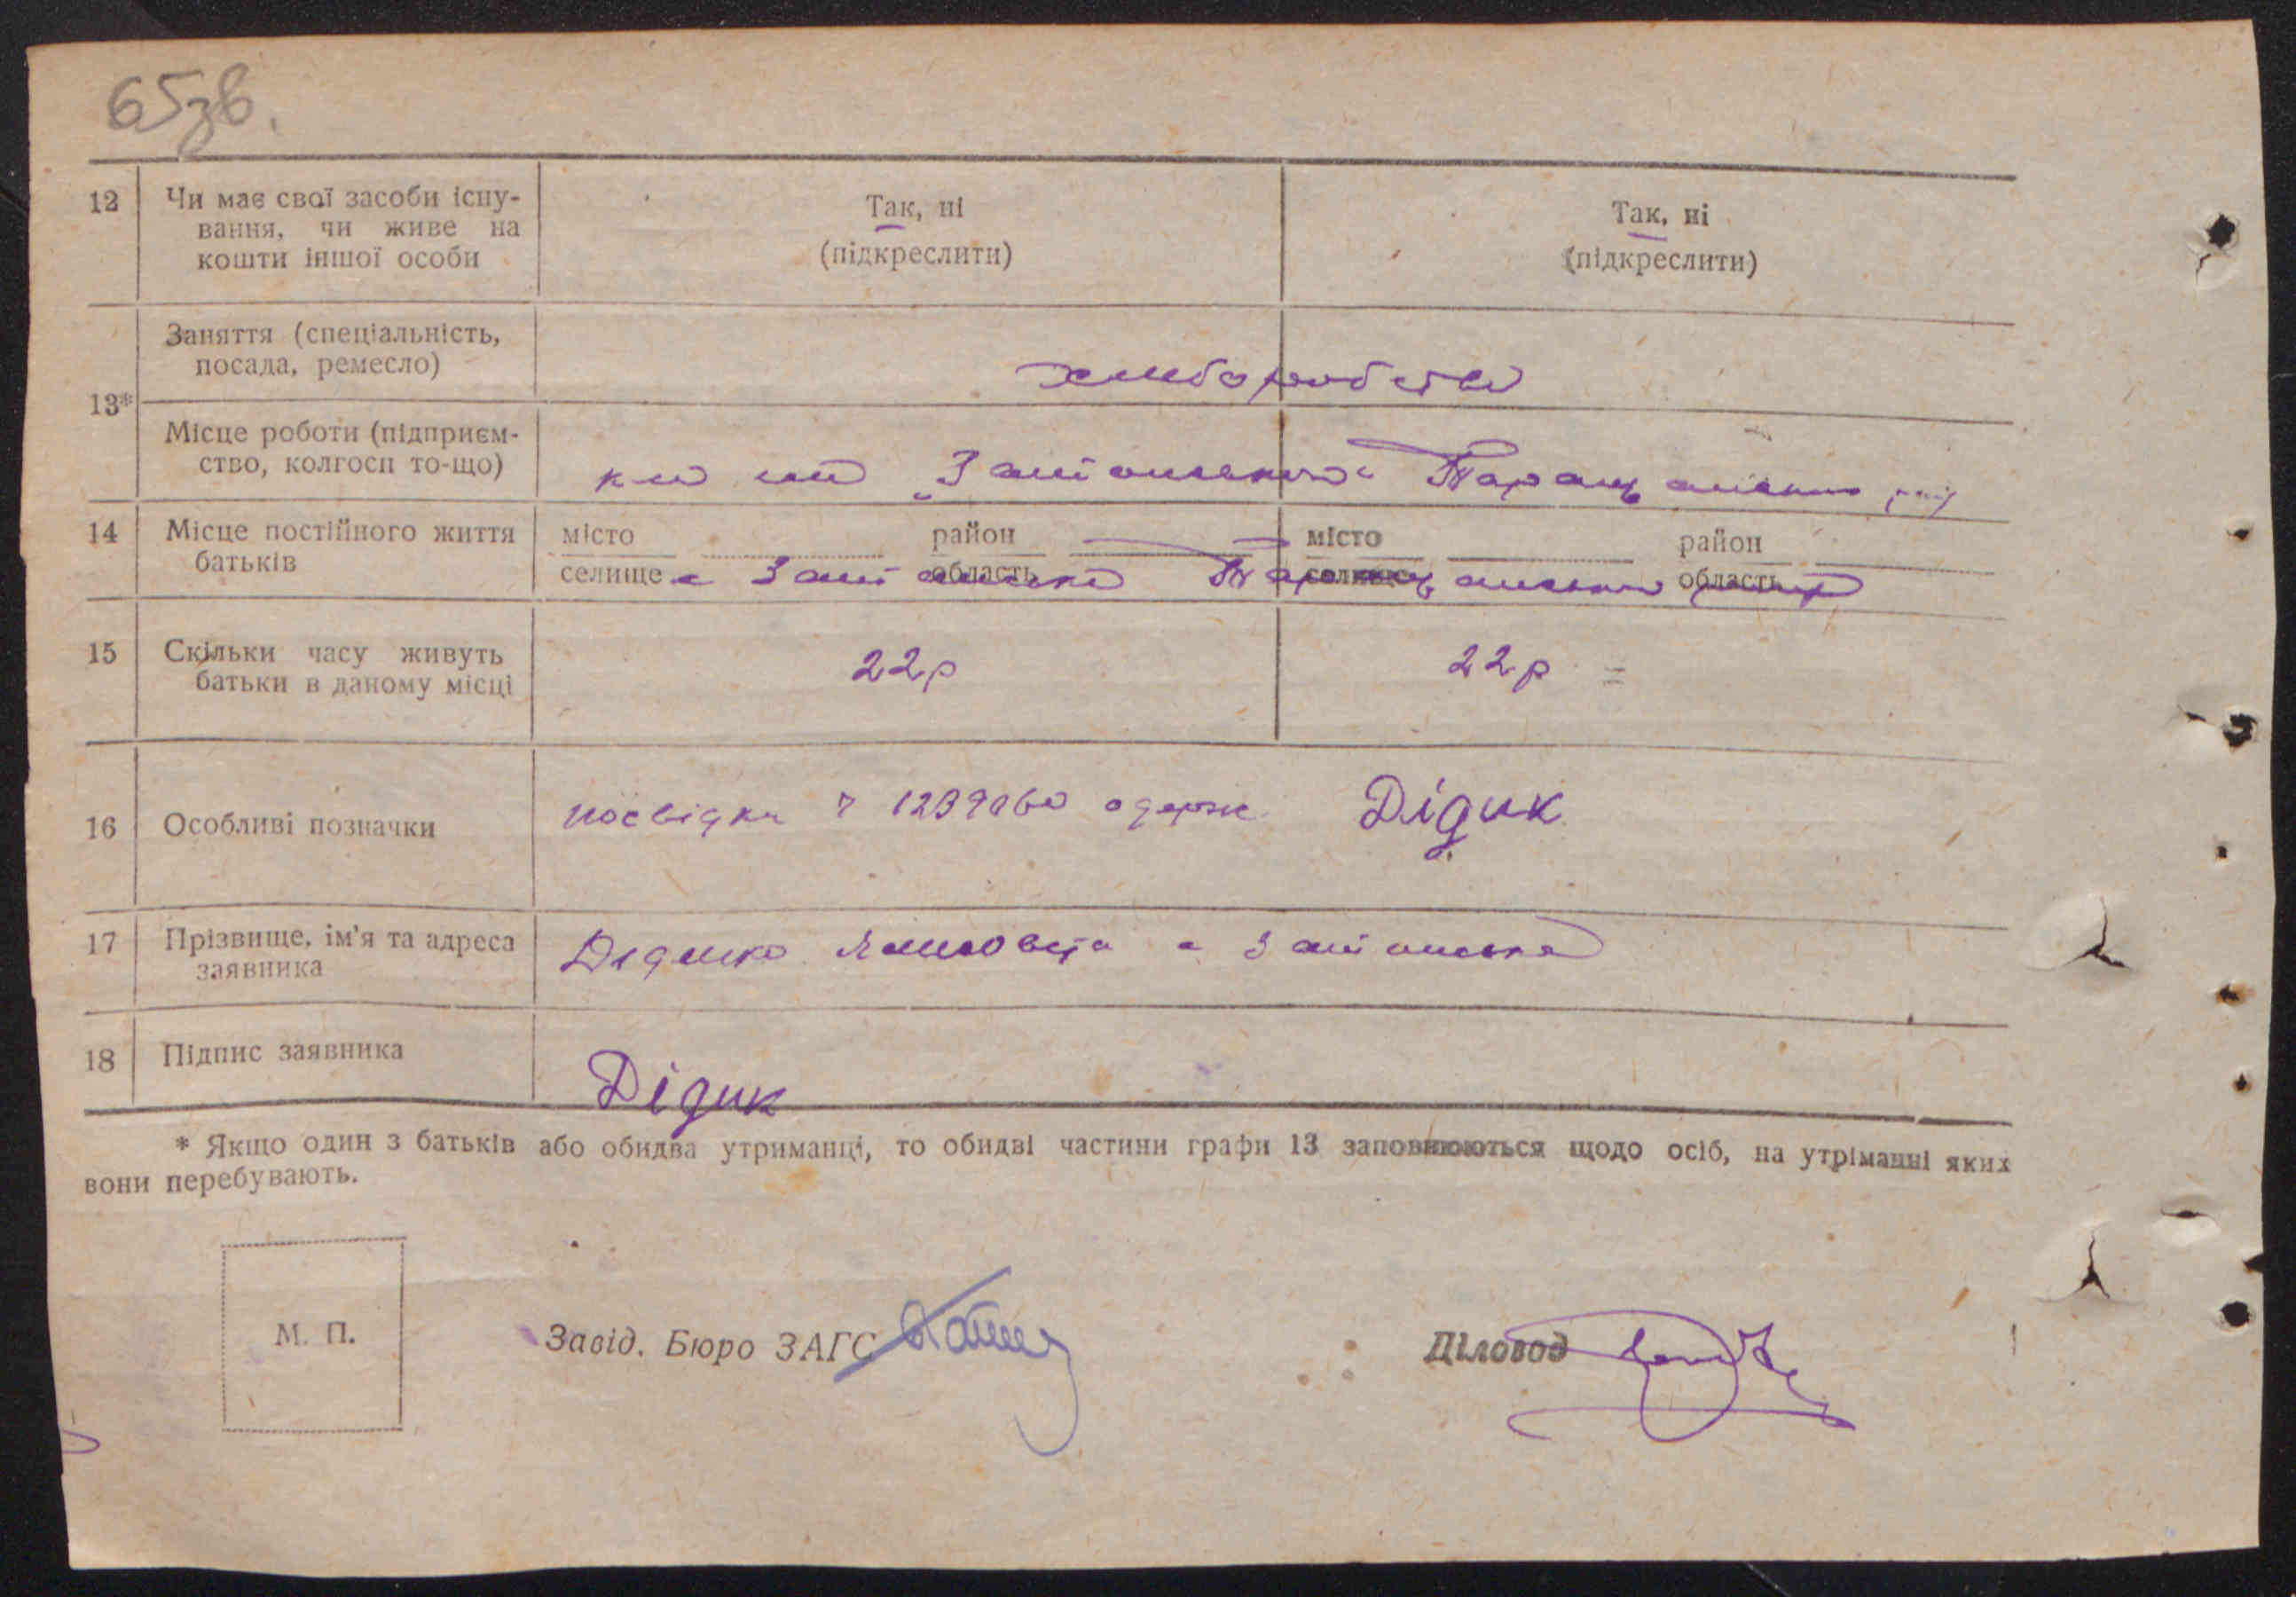 65зв.
12 Чи має свої засоби існу-
вання, чи живе на
кошти іншої особи
Так, ні
(підкреслити)
Так, ні
(підкреслити)
13*
Заняття (спеціальність,
посада, ремесло)
хліборобство
Місце роботи (підприєм-
ство, колгосп то-що)
14 Місце постійного життя
батьків
місто район
селище область
місто район
селище область
15 Скільки часу живуть
батьки в даному місці
22р 22р
16 Особливі позначки
посвідка одерж. Дідик
17 Прізвище, ім'я та адреса
заявника
18 Підпис заявника
Дідик
* Якщо один з батьків або обидва утриманці, то обидві частини графи 13 заповнюються щодо осіб, на утріманні яких
вони перебувають.
М. П.
Завід. Бюро ЗАГС
Діловод